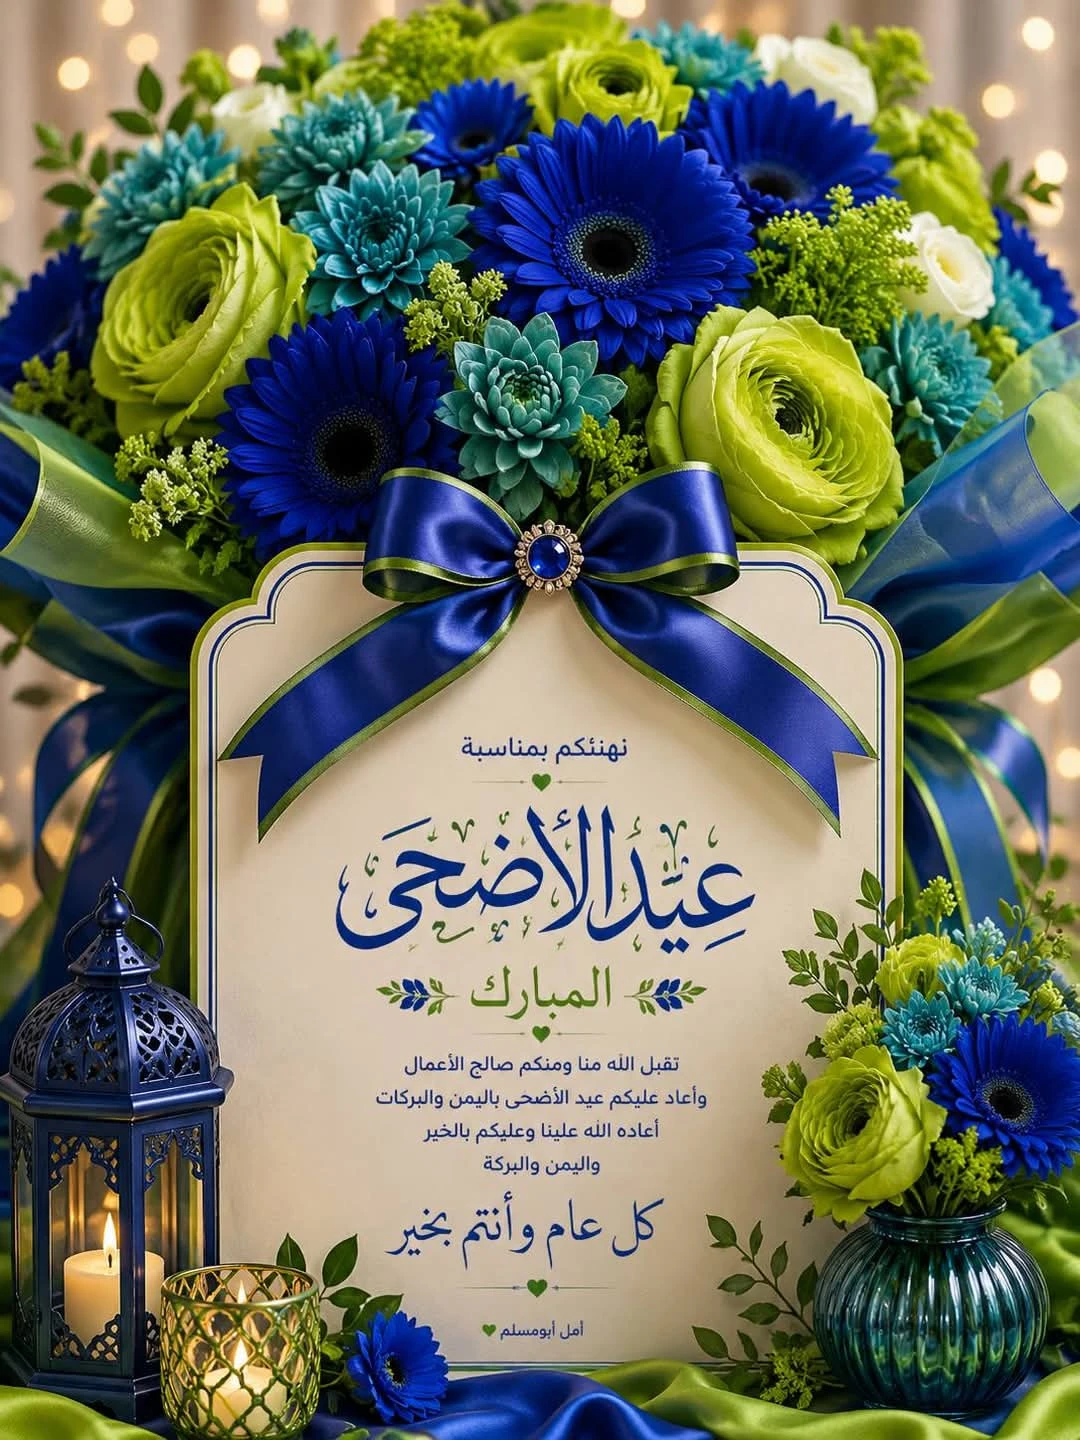 نهنئكم بمناسبة
عيد الأضحى
المبارك
تقبل الله منا ومنكم صالح الأعمال
وأعاد عليكم عيد الأضحى باليمن والبركات
أعاده الله علينا وعليكم بالخير
واليمن والبركة
كل عام وأنتم بخير
أمل أبومسلم